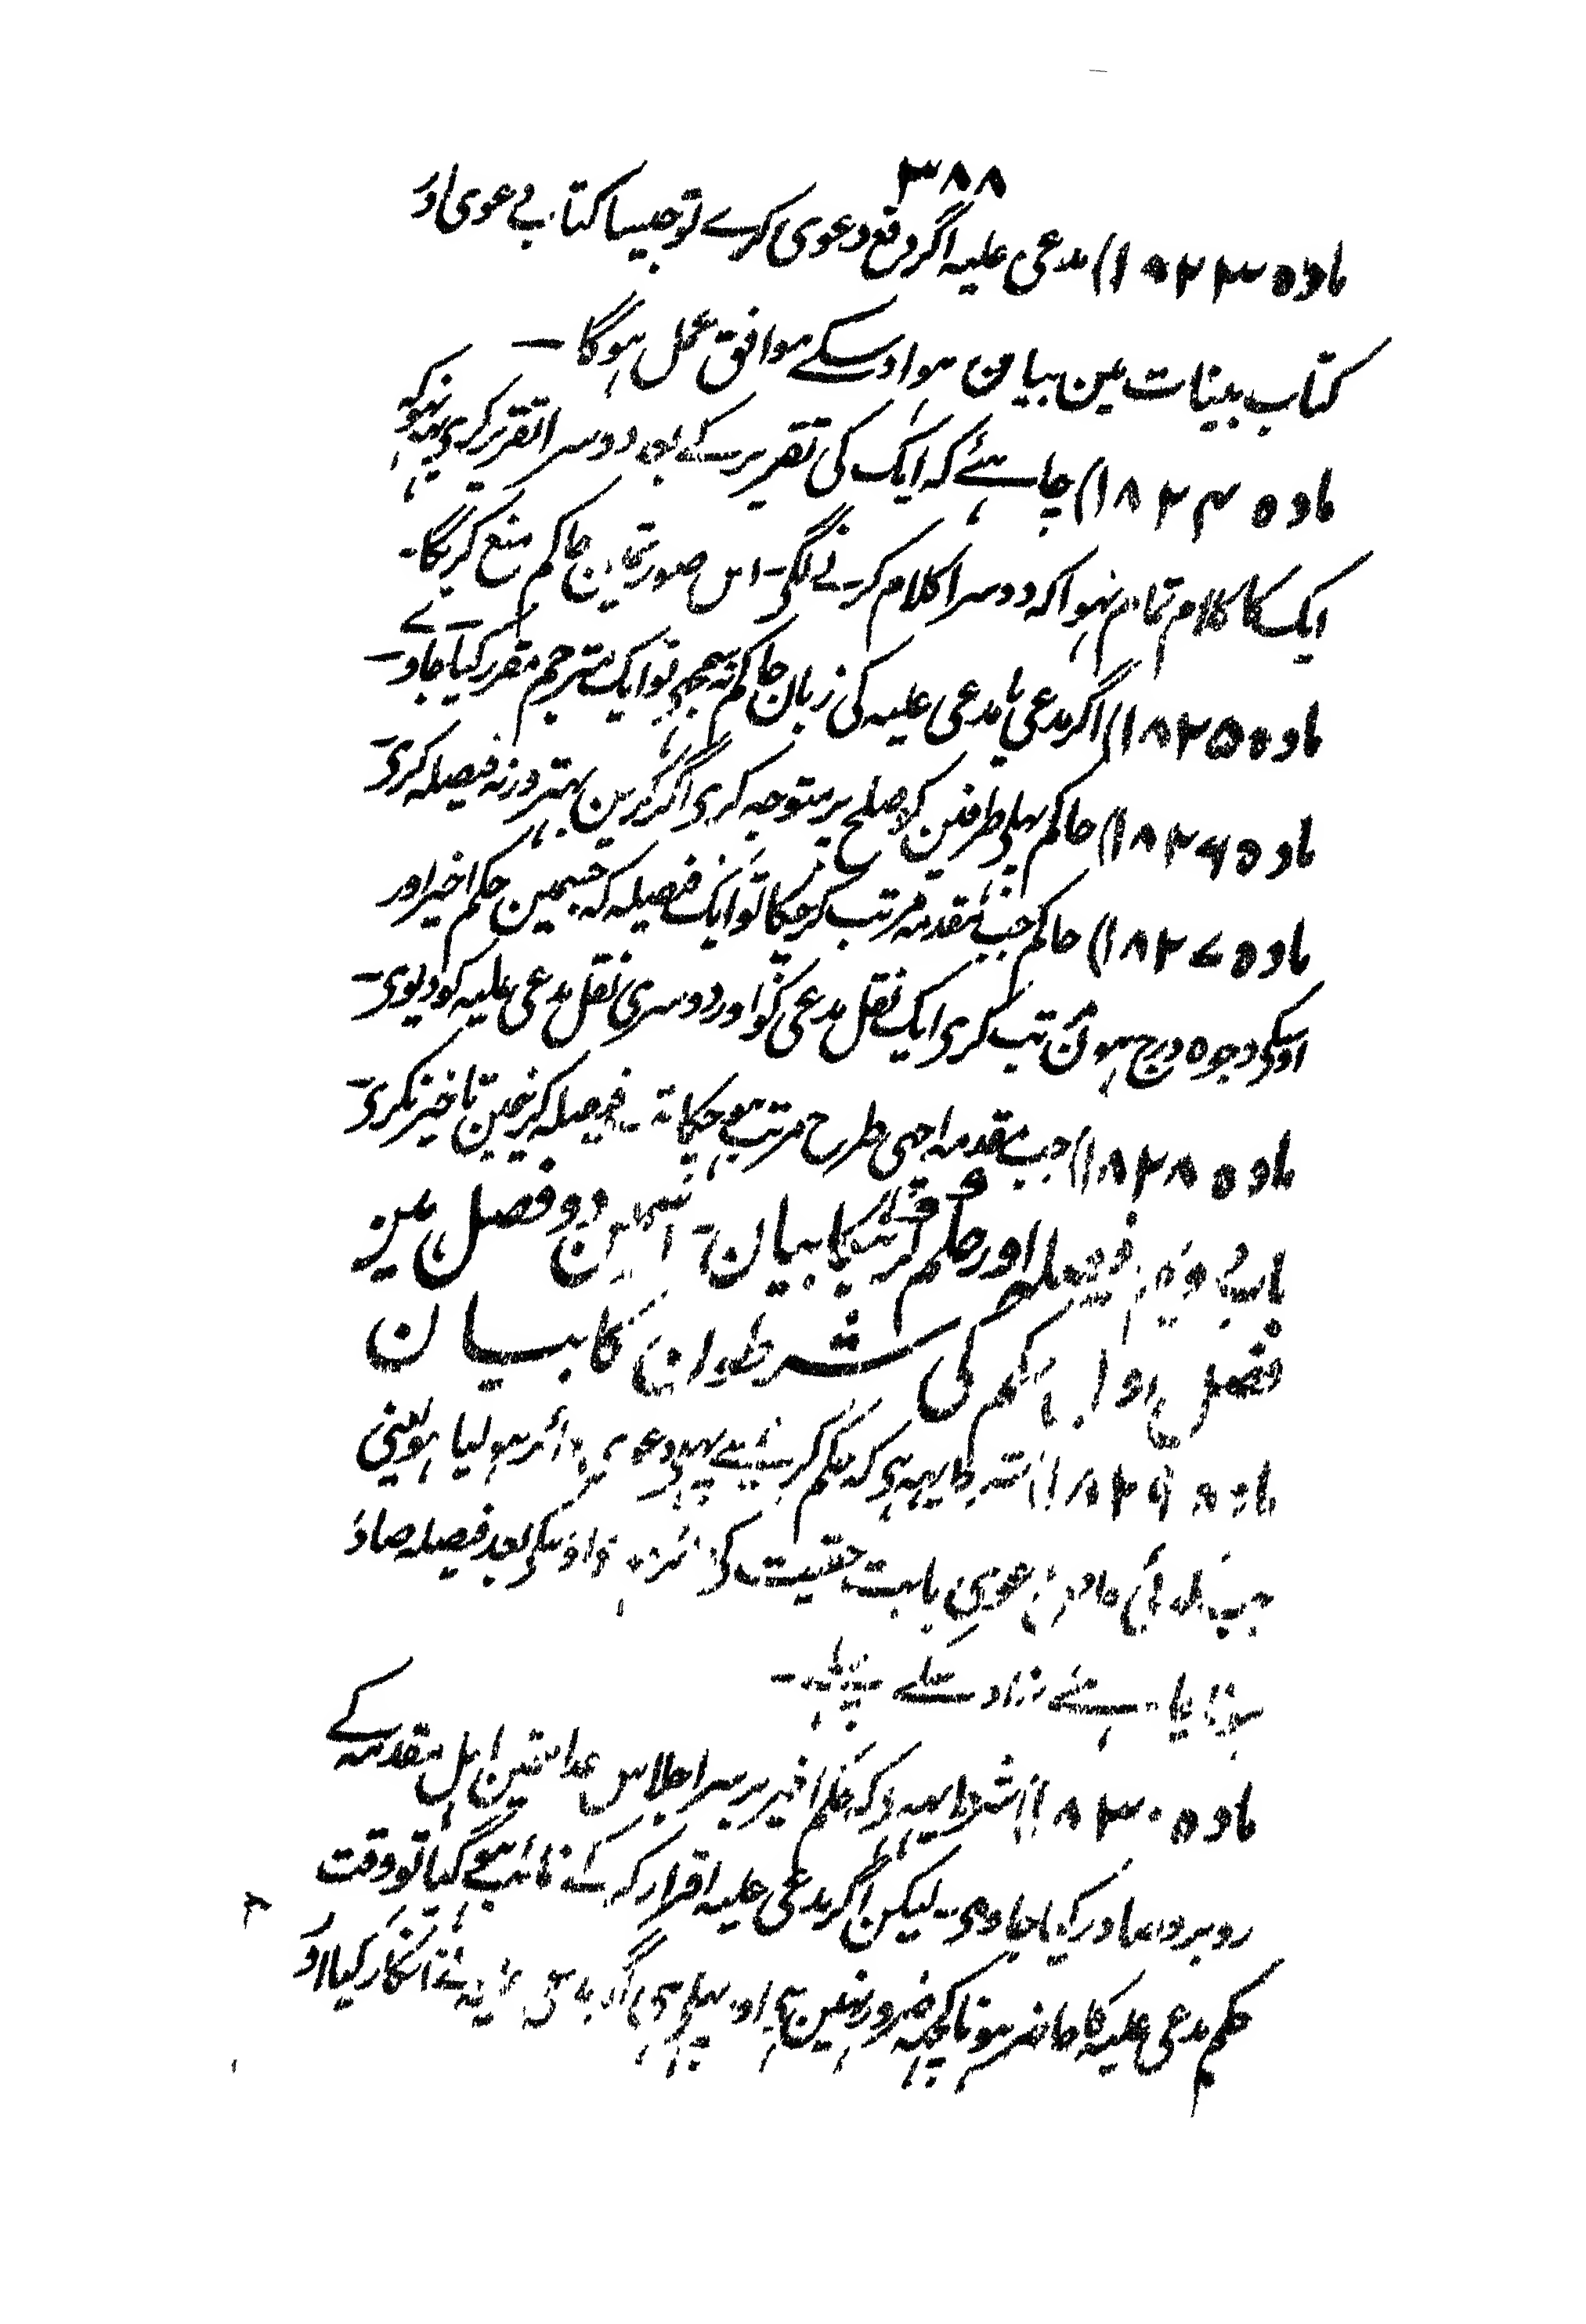 ۳۸۸
مادہ ۱۸۲۳) مدعی علیہ اگر دفع دعوی کرے تو جیسا کتاب دعوی اور
کتاب بینات مین بیان ہوا اوسکے موافق عمل ہوگا ۔
مادہ ۱۸۲۴) چاہئے کہ ایک کی تقریر کے بعد دوسرا تقریر کری یہ نہو کہ
ایک کا کلام تمام نہوا کہ دوسرا کلام کرنے لگی ۔ اس صورتمین حاکم منع کریگا ۔
مادہ ۱۸۲۵) اگر مدعی یا مدعی علیہ کی زبان حاکم نہ سمجھے تو ایک مترجم مقرر کیا جاوے ۔
مادہ ۱۸۲۶) حاکم پہلی طرفین کو صلح پر متوجہ کری اگر کرین بہتر ورنہ فیصلہ کری ۔
مادہ ۱۸۲۷) حاکم جب مقدمہ مرتب کرچکا تو ایک فیصلہ کہ جسمین حکم اخیر اور
اوسکی وجوہ درج ہون مرتب کری ایک نقل مدعی کو اور دوسری نقل مدعی علیہ کو دیوی ۔
مادہ ۱۸۲۸) جب مقدمہ اچھی طرح مرتب ہوچکا تو فیصلہ کرنیمین تاخیر نکری ۔
باب دویم فیصلہ اور حکم کرنیکا بیان ۔ اسمین دو فصل ہین
فصل اول حکم کی شرطون کا بیان
مادہ ۱۸۲۹) شرط یہہ ہی کہ حکم کرنے سے پہلی دعوی دائر ہولیا ہو یعنی
جب کوئی دعوی بابت حقیت کی اوسکی بعد فیصلہ صادر
ہونا چاہئے نہ اوسکے پہلے ۔
مادہ ۱۸۳۰) شرط یہہ ہی کہ حکم اخیر بر سر اجلاس عدالتمین اہل مقدمہ کے
روبرو صادر کیا جاوی ۔ لیکن اگر مدعی علیہ اقرار کرکے غائب ہوگیا تو وقت
حکم مدعی علیہ کا حاضر ہونا کچہہ ضرور نہین ہی اور پہلی ہی اگر مدعی علیہ نے انکار کیا اور